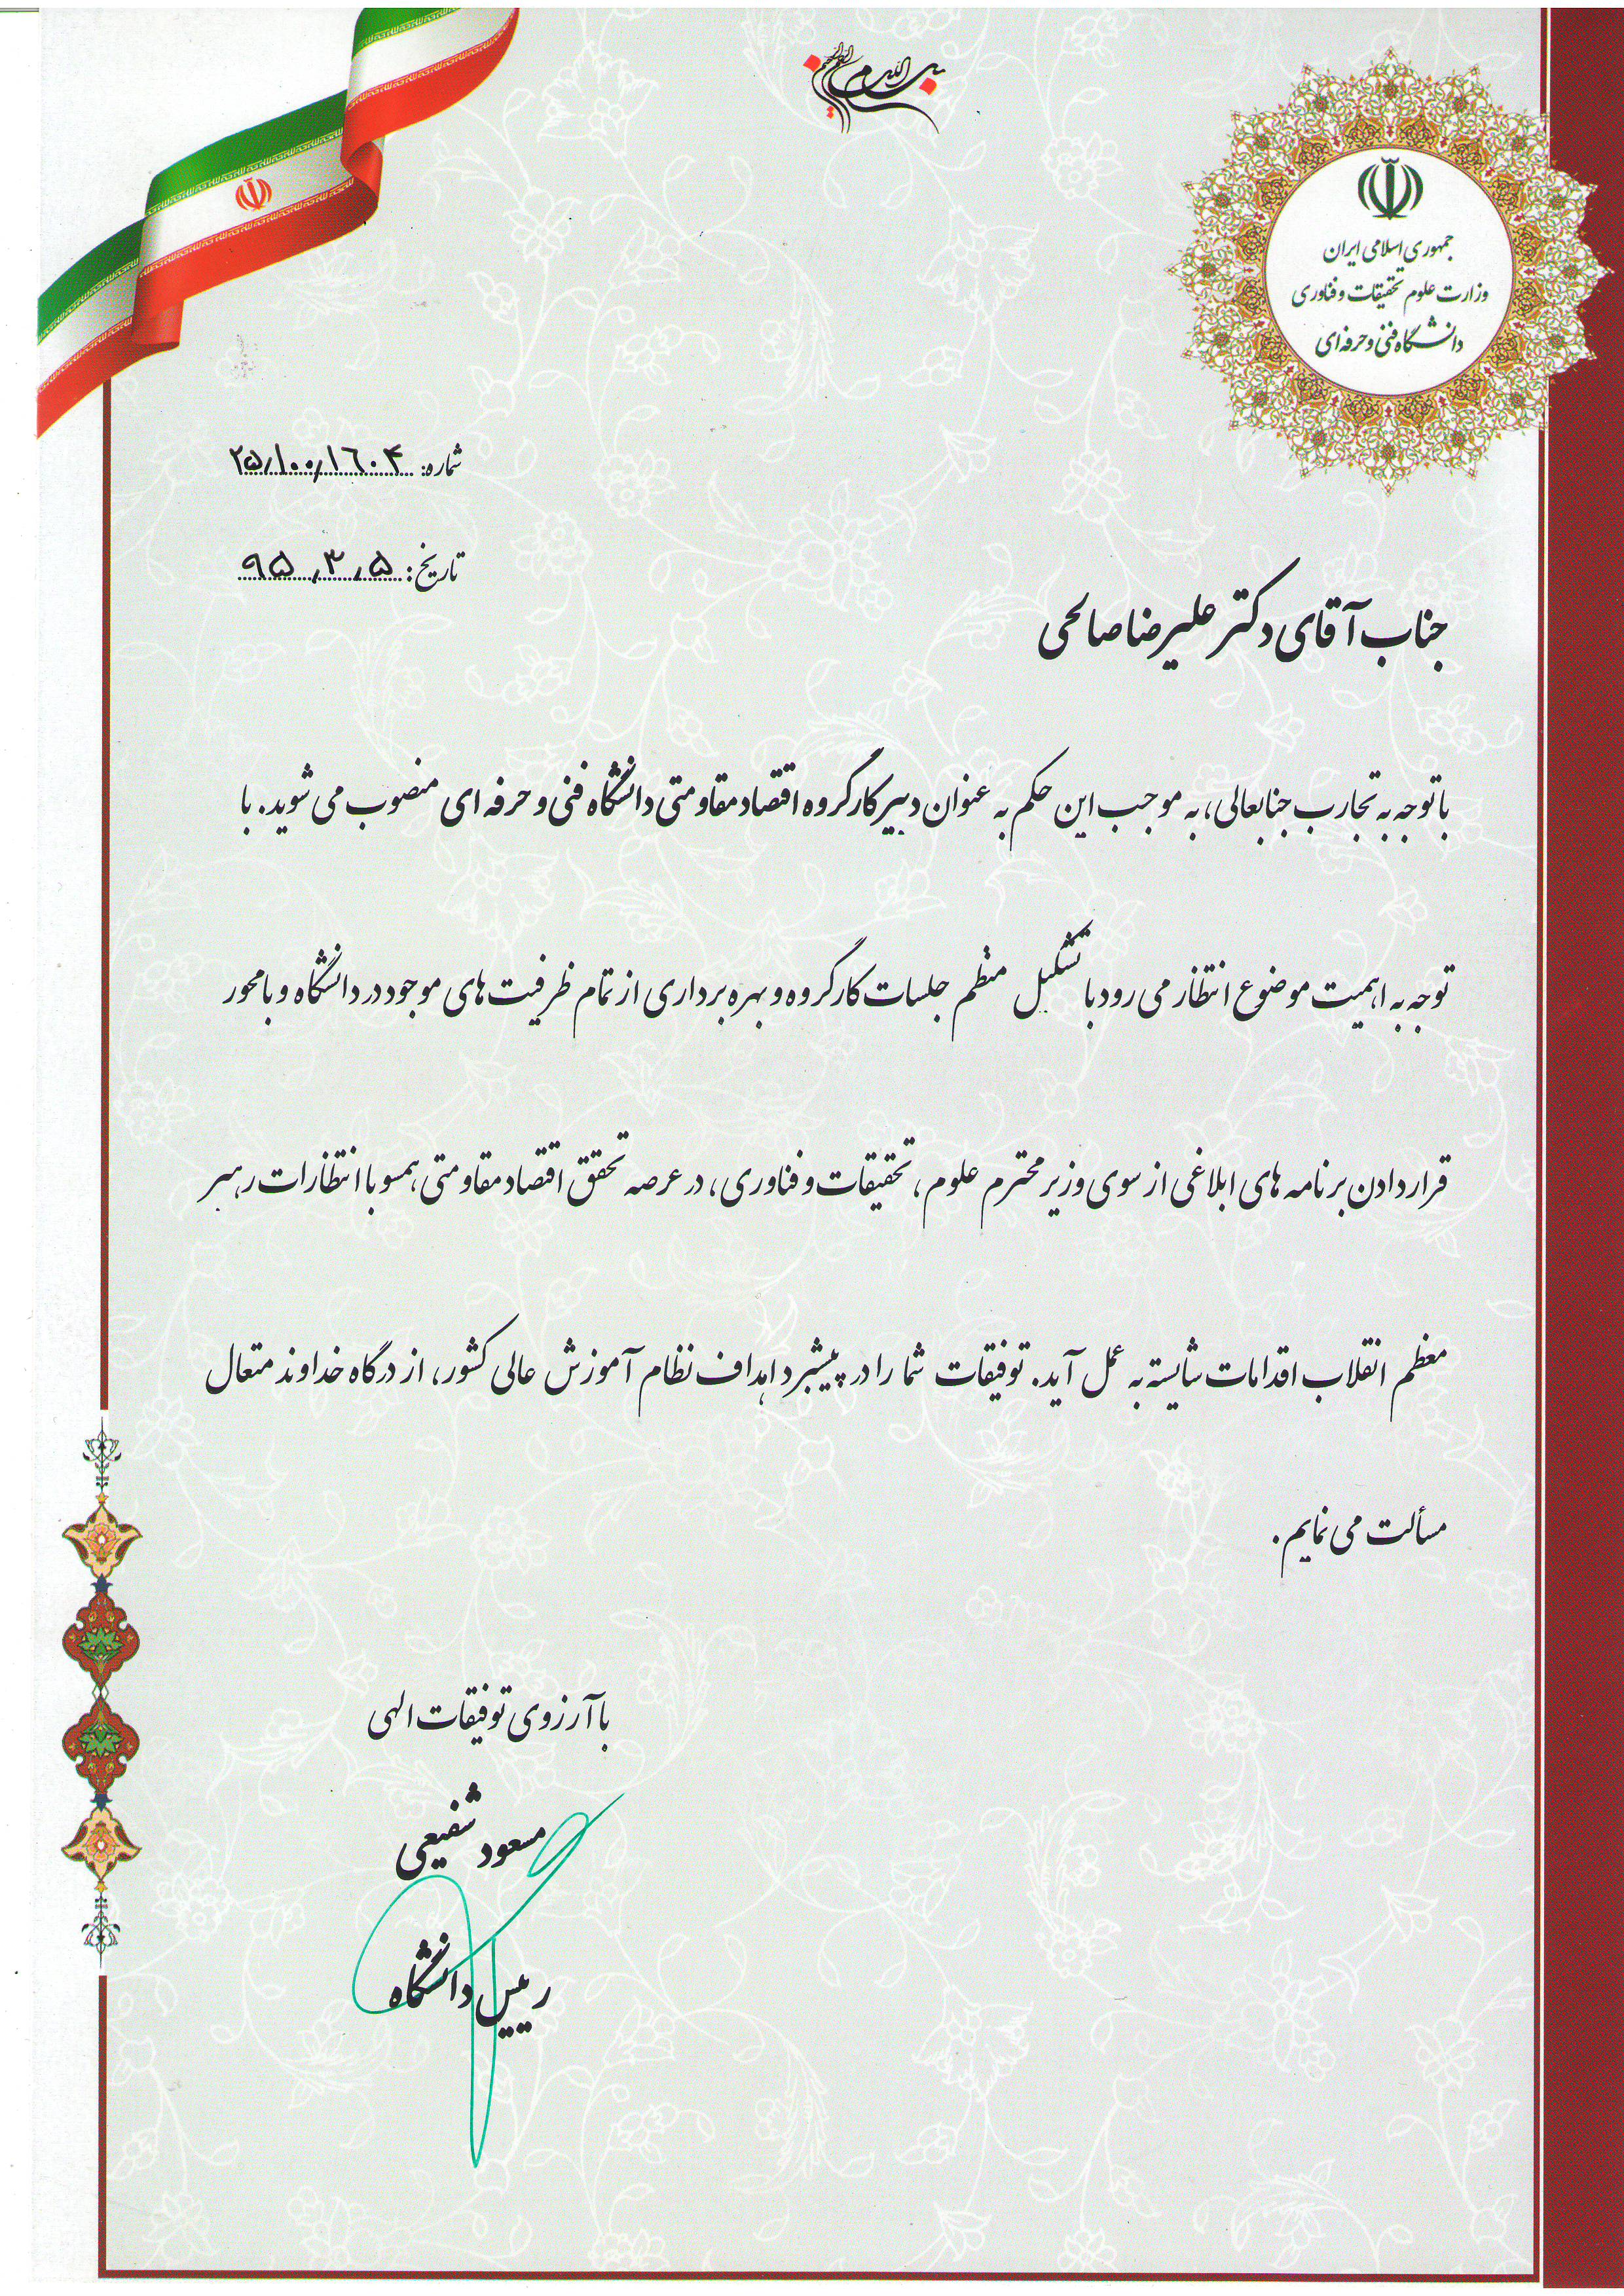 بسم الله الرحمن الرحیم
جمهوری اسلامی ایران
وزارت علوم تحقیقات و فناوری
دانشگاه فنی و حرفه‌ای
شماره: ۲۵/۱۰۰/۱۶۰۴
تاریخ: ۹۵/۳/۵
جناب آقای دکتر علیرضا صالحی
با توجه به تجارب جنابعالی، به موجب این حکم به عنوان دبیر کارگروه اقتصاد مقاومتی دانشگاه فنی و حرفه ای منصوب می شوید. با
توجه به اهمیت موضوع انتظار می رود با تشکیل منظم جلسات کارگروه و بهره برداری از تمام ظرفیت های موجود در دانشگاه و با محور
قرار دادن برنامه های ابلاغی از سوی وزیر محترم علوم، تحقیقات و فناوری، در عرصه تحقق اقتصاد مقاومتی، همسو با انتظارات رهبر
معظم انقلاب اقدامات شایسته به عمل آید. توفیقات شما را در پیشبرد اهداف نظام آموزش عالی کشور، از درگاه خداوند متعال
مسألت می نمایم.
با آرزوی توفیقات الهی
مسعود شفیعی
رییس دانشگاه